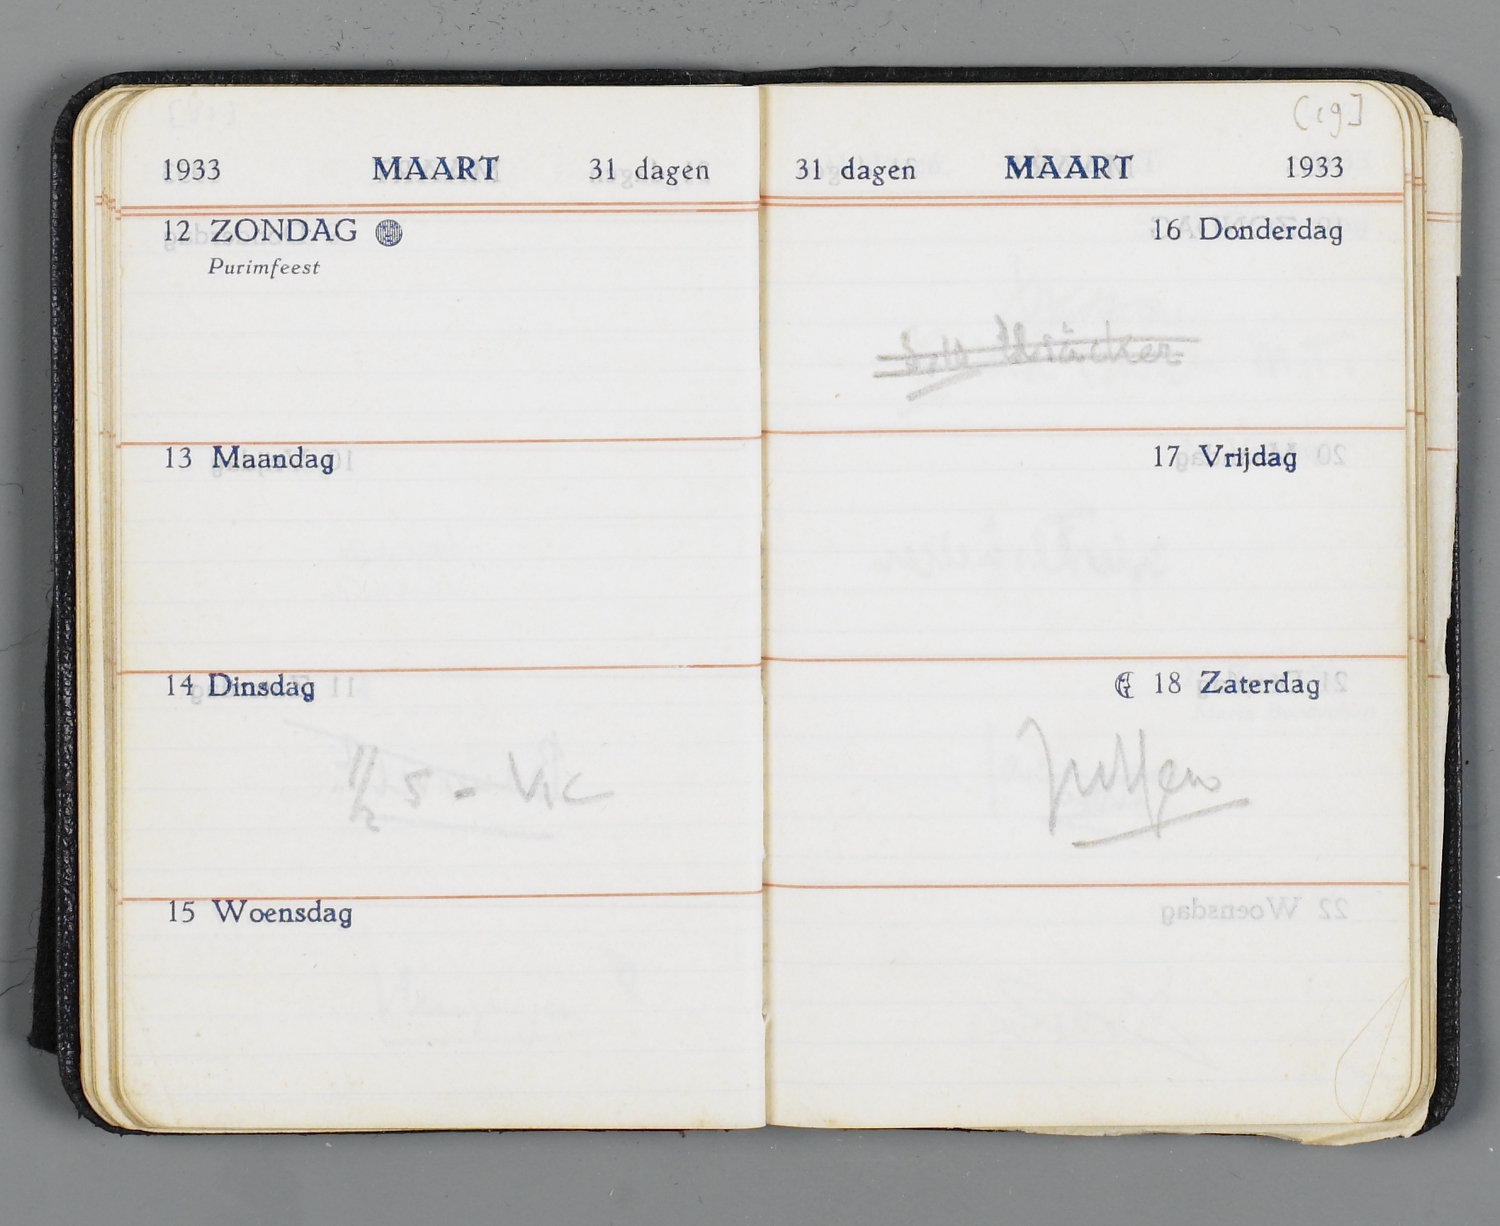 1933 MAART 31 dagen
12 ZONDAG
Purimfeest
13 Maandag
14 Dinsdag
1/2 5 - Vic
15 Woensdag
[19]
31 dagen MAART 1933
16 Donderdag
17 Vrijdag
18 Zaterdag